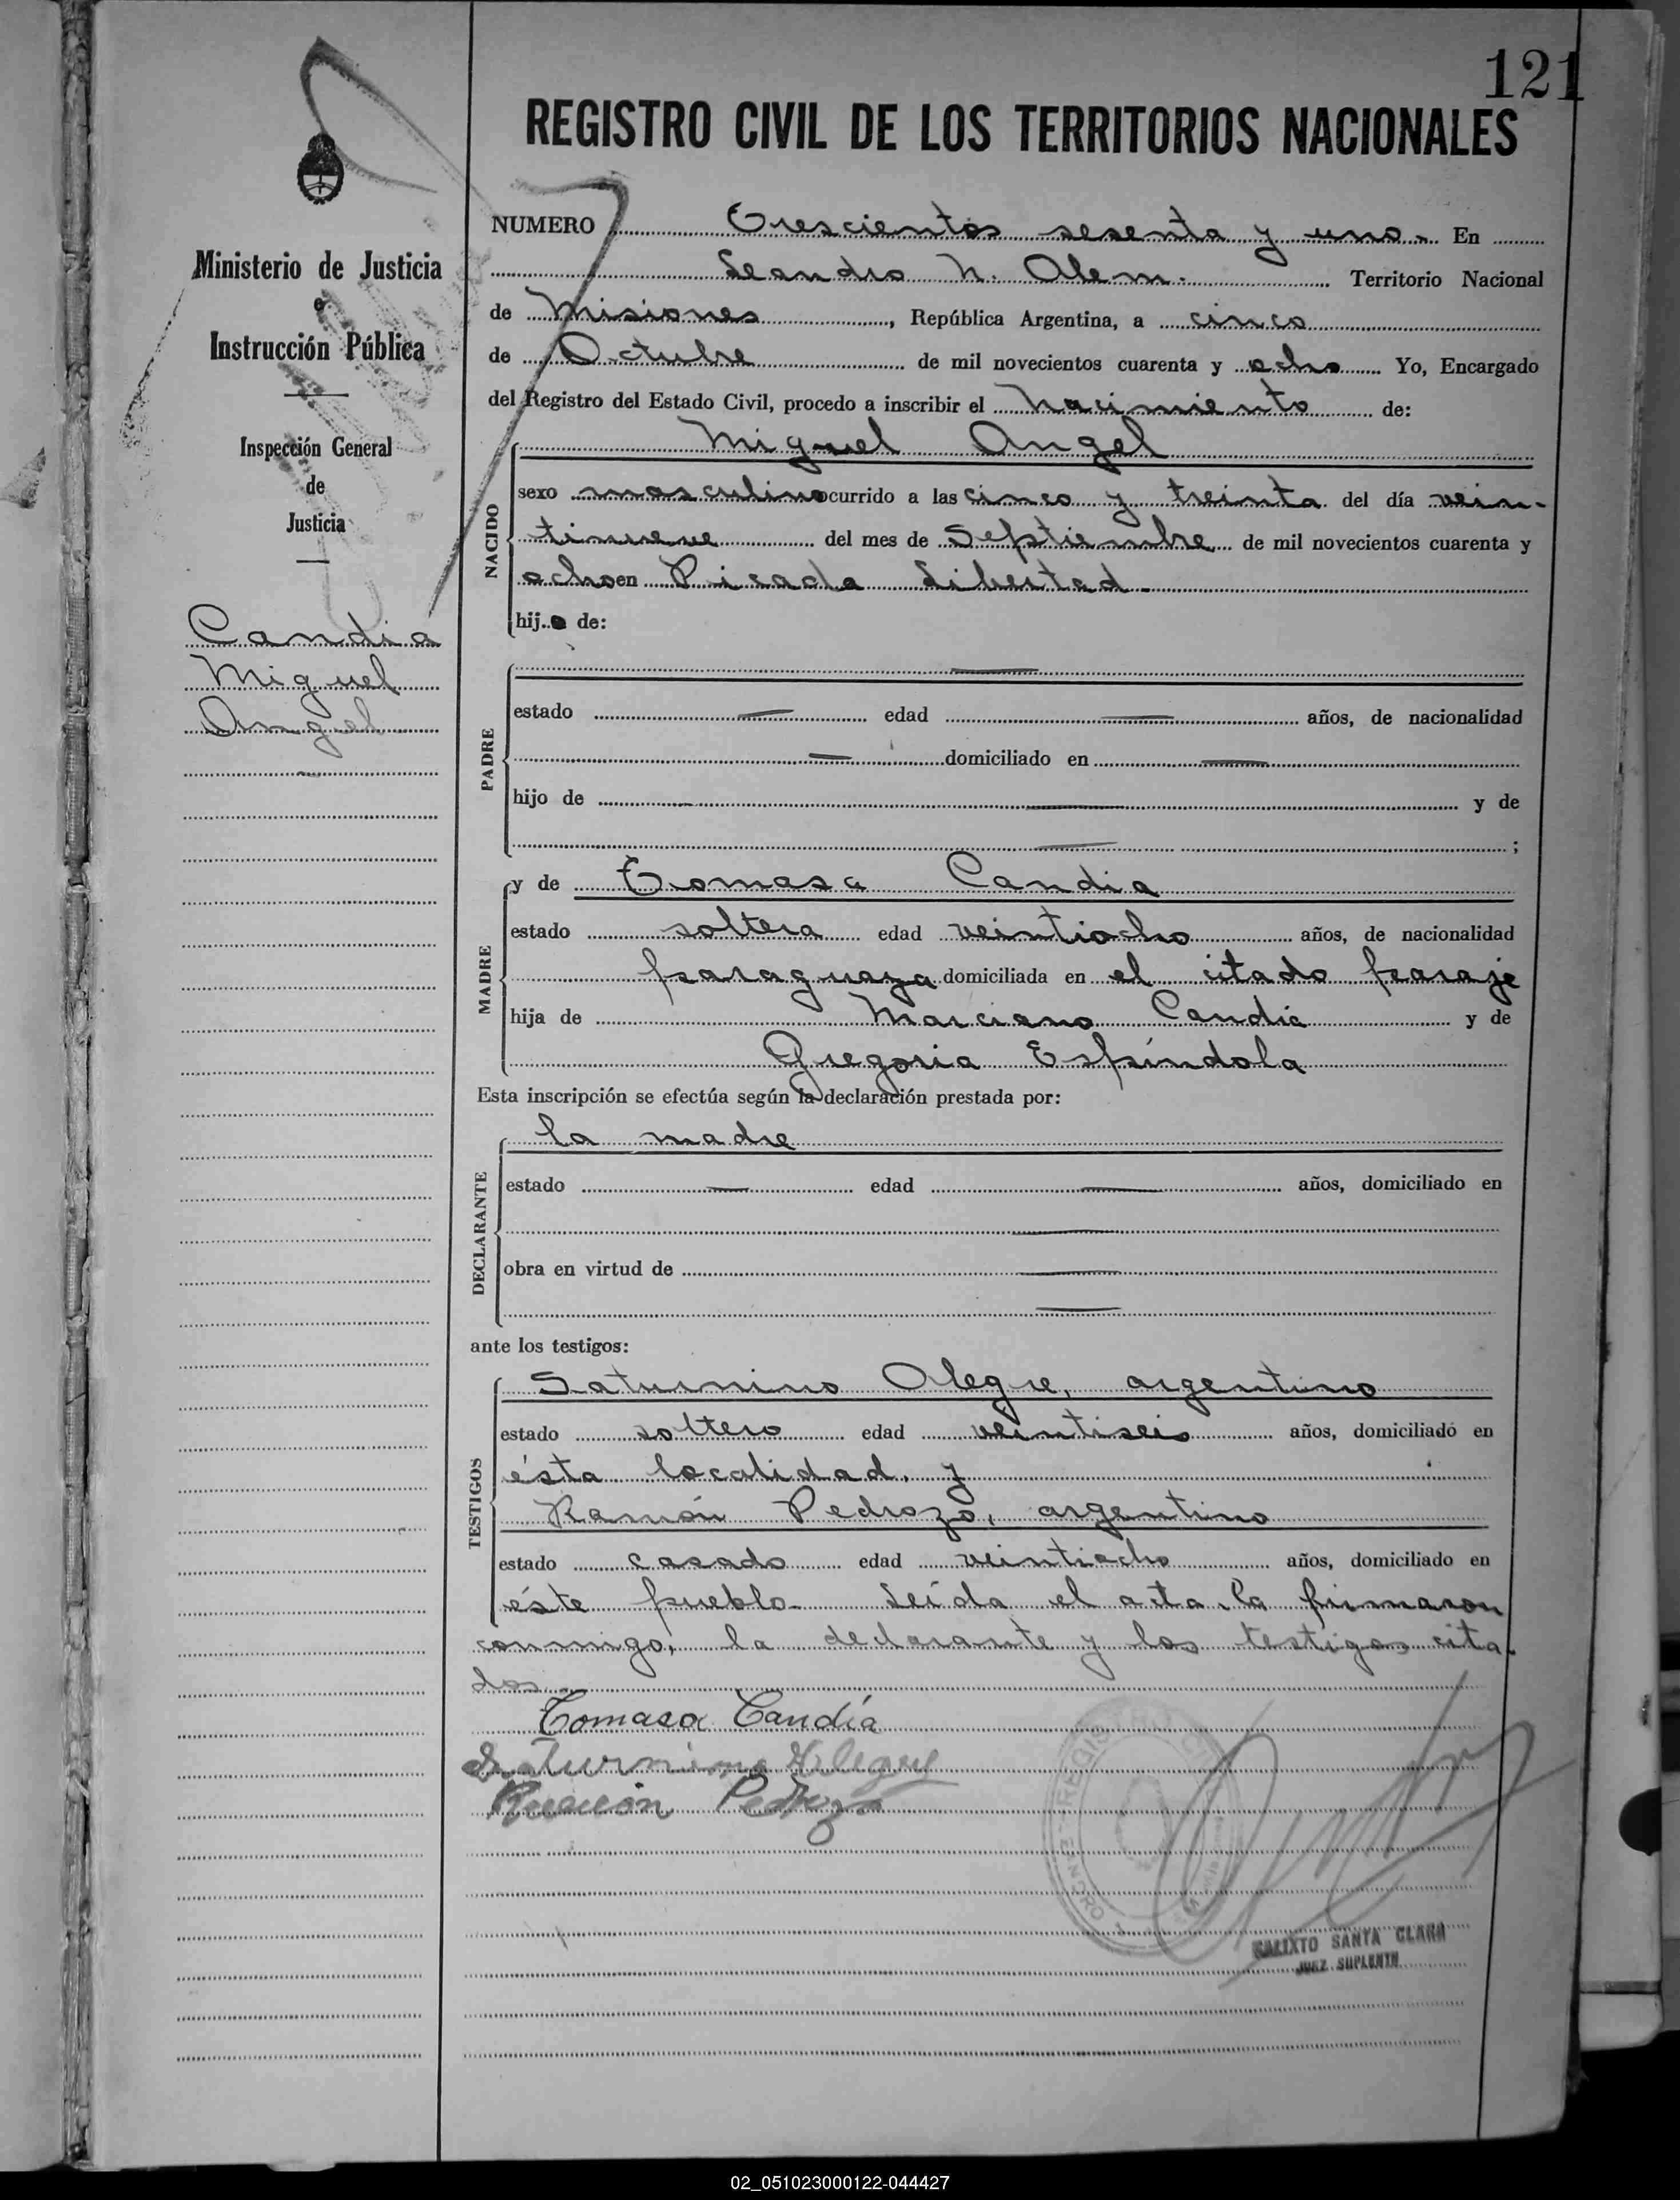 121
REGISTRO CIVIL DE LOS TERRITORIOS NACIONALES
Ministerio de Justicia
e
Instrucción Pública
Inspección General
de
Justicia
Candia
Miguel
Angel
NUMERO Trescientos sesenta y uno. En
Leandro N. Alem. Territorio Nacional
de Misiones, República Argentina, a cinco
de Octubre de mil novecientos cuarenta y ocho Yo, Encargado
del Registro del Estado Civil, procedo a inscribir el Nacimiento de:
NACIDO
Miguel Angel
sexo masculino ocurrido a las cinco y treinta del día vein-
tinueve del mes de Septiembre de mil novecientos cuarenta y
ocho en Picada Libertad.
hijo de:
PADRE
estado edad años, de nacionalidad
domiciliado en
hijo de y de
;
MADRE
y de Tomasa Candia
estado soltera edad veintiocho años, de nacionalidad
paraguaya domiciliada en el citado paraje
hija de Marciano Candia y de
Gregoria Espíndola
Esta inscripción se efectúa según la declaración prestada por:
DECLARANTE
la madre
estado edad años, domiciliado en
obra en virtud de
ante los testigos:
TESTIGOS
Saturnino Alegre, argentino
estado soltero edad veintiseis años, domiciliado en
ésta localidad, y
Ramón Pedrozo, argentino
estado casado edad veintiocho años, domiciliado en
éste pueblo. Leída el acta, la firmaron
conmigo, la declarante y los testigos cita-
dos.
Tomasa Candía
Saturnino Alegre
Ramón Pedrozo
CALIXTO SANTA CLARA
JUEZ SUPLENTE
02_051023000122-044427